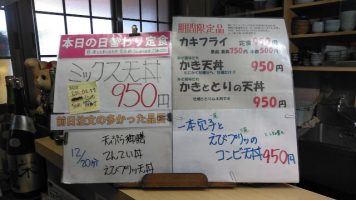 本日の日替わり定食
ミックス天丼
950円
前日注文の多かった品
天ぷら御膳
てんてい丼
えびプリッ天丼
12/20分
期間限定品
カキフライ 定食 990円
単品 750円 500円
かき天丼 950円
かきととりの天丼
950円
一本穴子と
えびプリッの
コンビ天丼 950円